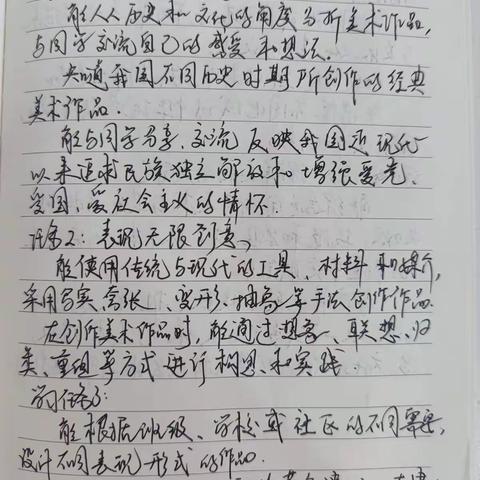 能从历史和文化的角度分析美术作品,
与同学交流自己的感受和想法.
知道我国不同历史时期所创作的经典
美术作品.
能与同学分享、交流反映我国近现代
以来追求民族独立解放和增强爱党、
爱国、爱社会主义的情怀.
任务2: 表现无限创意、
能使用传统与现代的工具、材料和媒介,
采用写实、夸张、变形、抽象等手法创作作品.
在创作美术作品时, 能通过想象、联想、归
类、重组等方式进行构思、和实践.
学习任务3:
能根据班级、学校或社区的不同需要,
设计不同表现形式的作品.